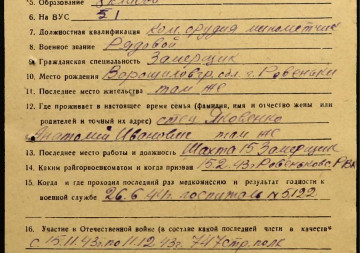 *5. Образование 7 классов
6. На ВУС 51
7. Должностная квалификация ком. орудия минометчик
8. Военное звание Рядовой
9. Гражданская специальность Замерщик
10. Место рождения Ворошиловгр. обл. г. Ровеньки
11. Последнее место жительства там же
12. Где проживает в настоящее время семья (фамилия, имя и отчество жены или
родителей и точный их адрес) отец
Анатолий Иванович там же
13. Последнее место работы и должность Шахта 15 Замерщик
14. Каким райгорвоенкоматом и когда призван 15.2.43г Ровеньковс. РВК
15. Когда и где проходил последний раз медкомиссию и результат годности к
военной службе 26.6.44г. госпиталь №5122
16. Участие в Отечественной войне (в составе какой последней части и в качестве
с 15.11.43г. по 11.12.43г. 747 стр. полк